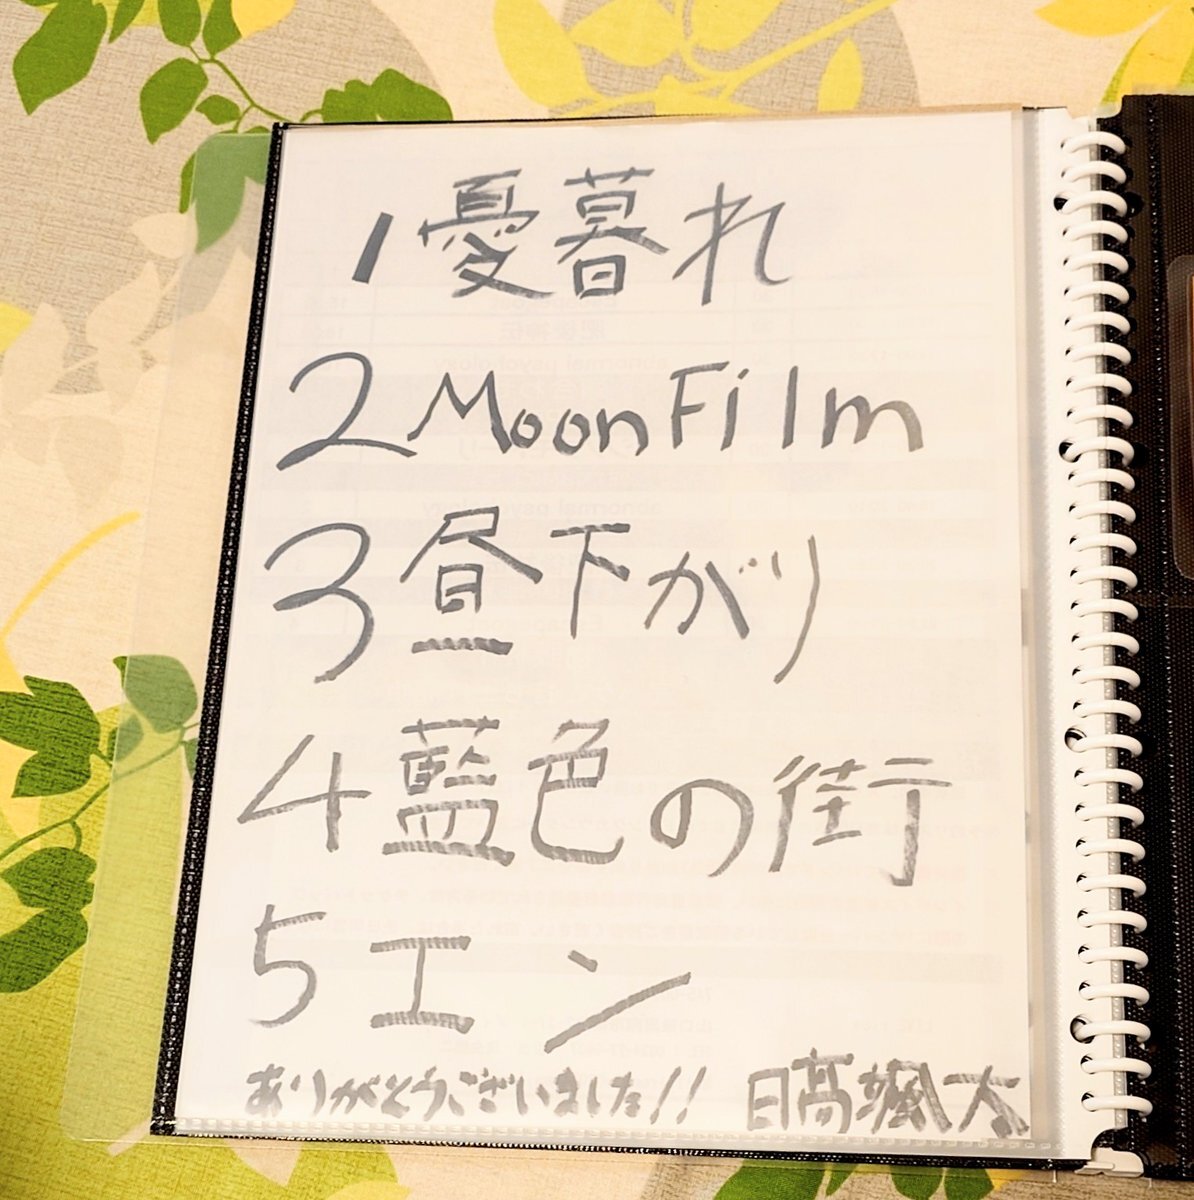 1 憂暮れ
2 Moon Film
3 昼下がり
4 藍色の街
5 エン
ありがとうございました!! 日高颯大